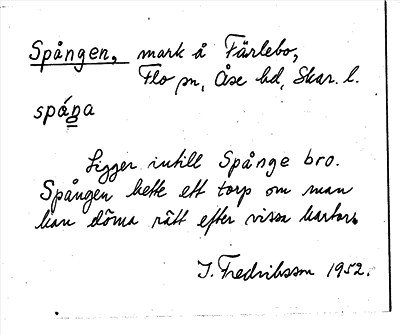 Spången, mark å Färlebo,
Flo sn, Åse hd, Skar. l.
spáŋa
Ligger intill Spånge bro.
Spången hette ett torp om man
kan döma rätt efter vissa kartor.
I. Fredriksson 1952.